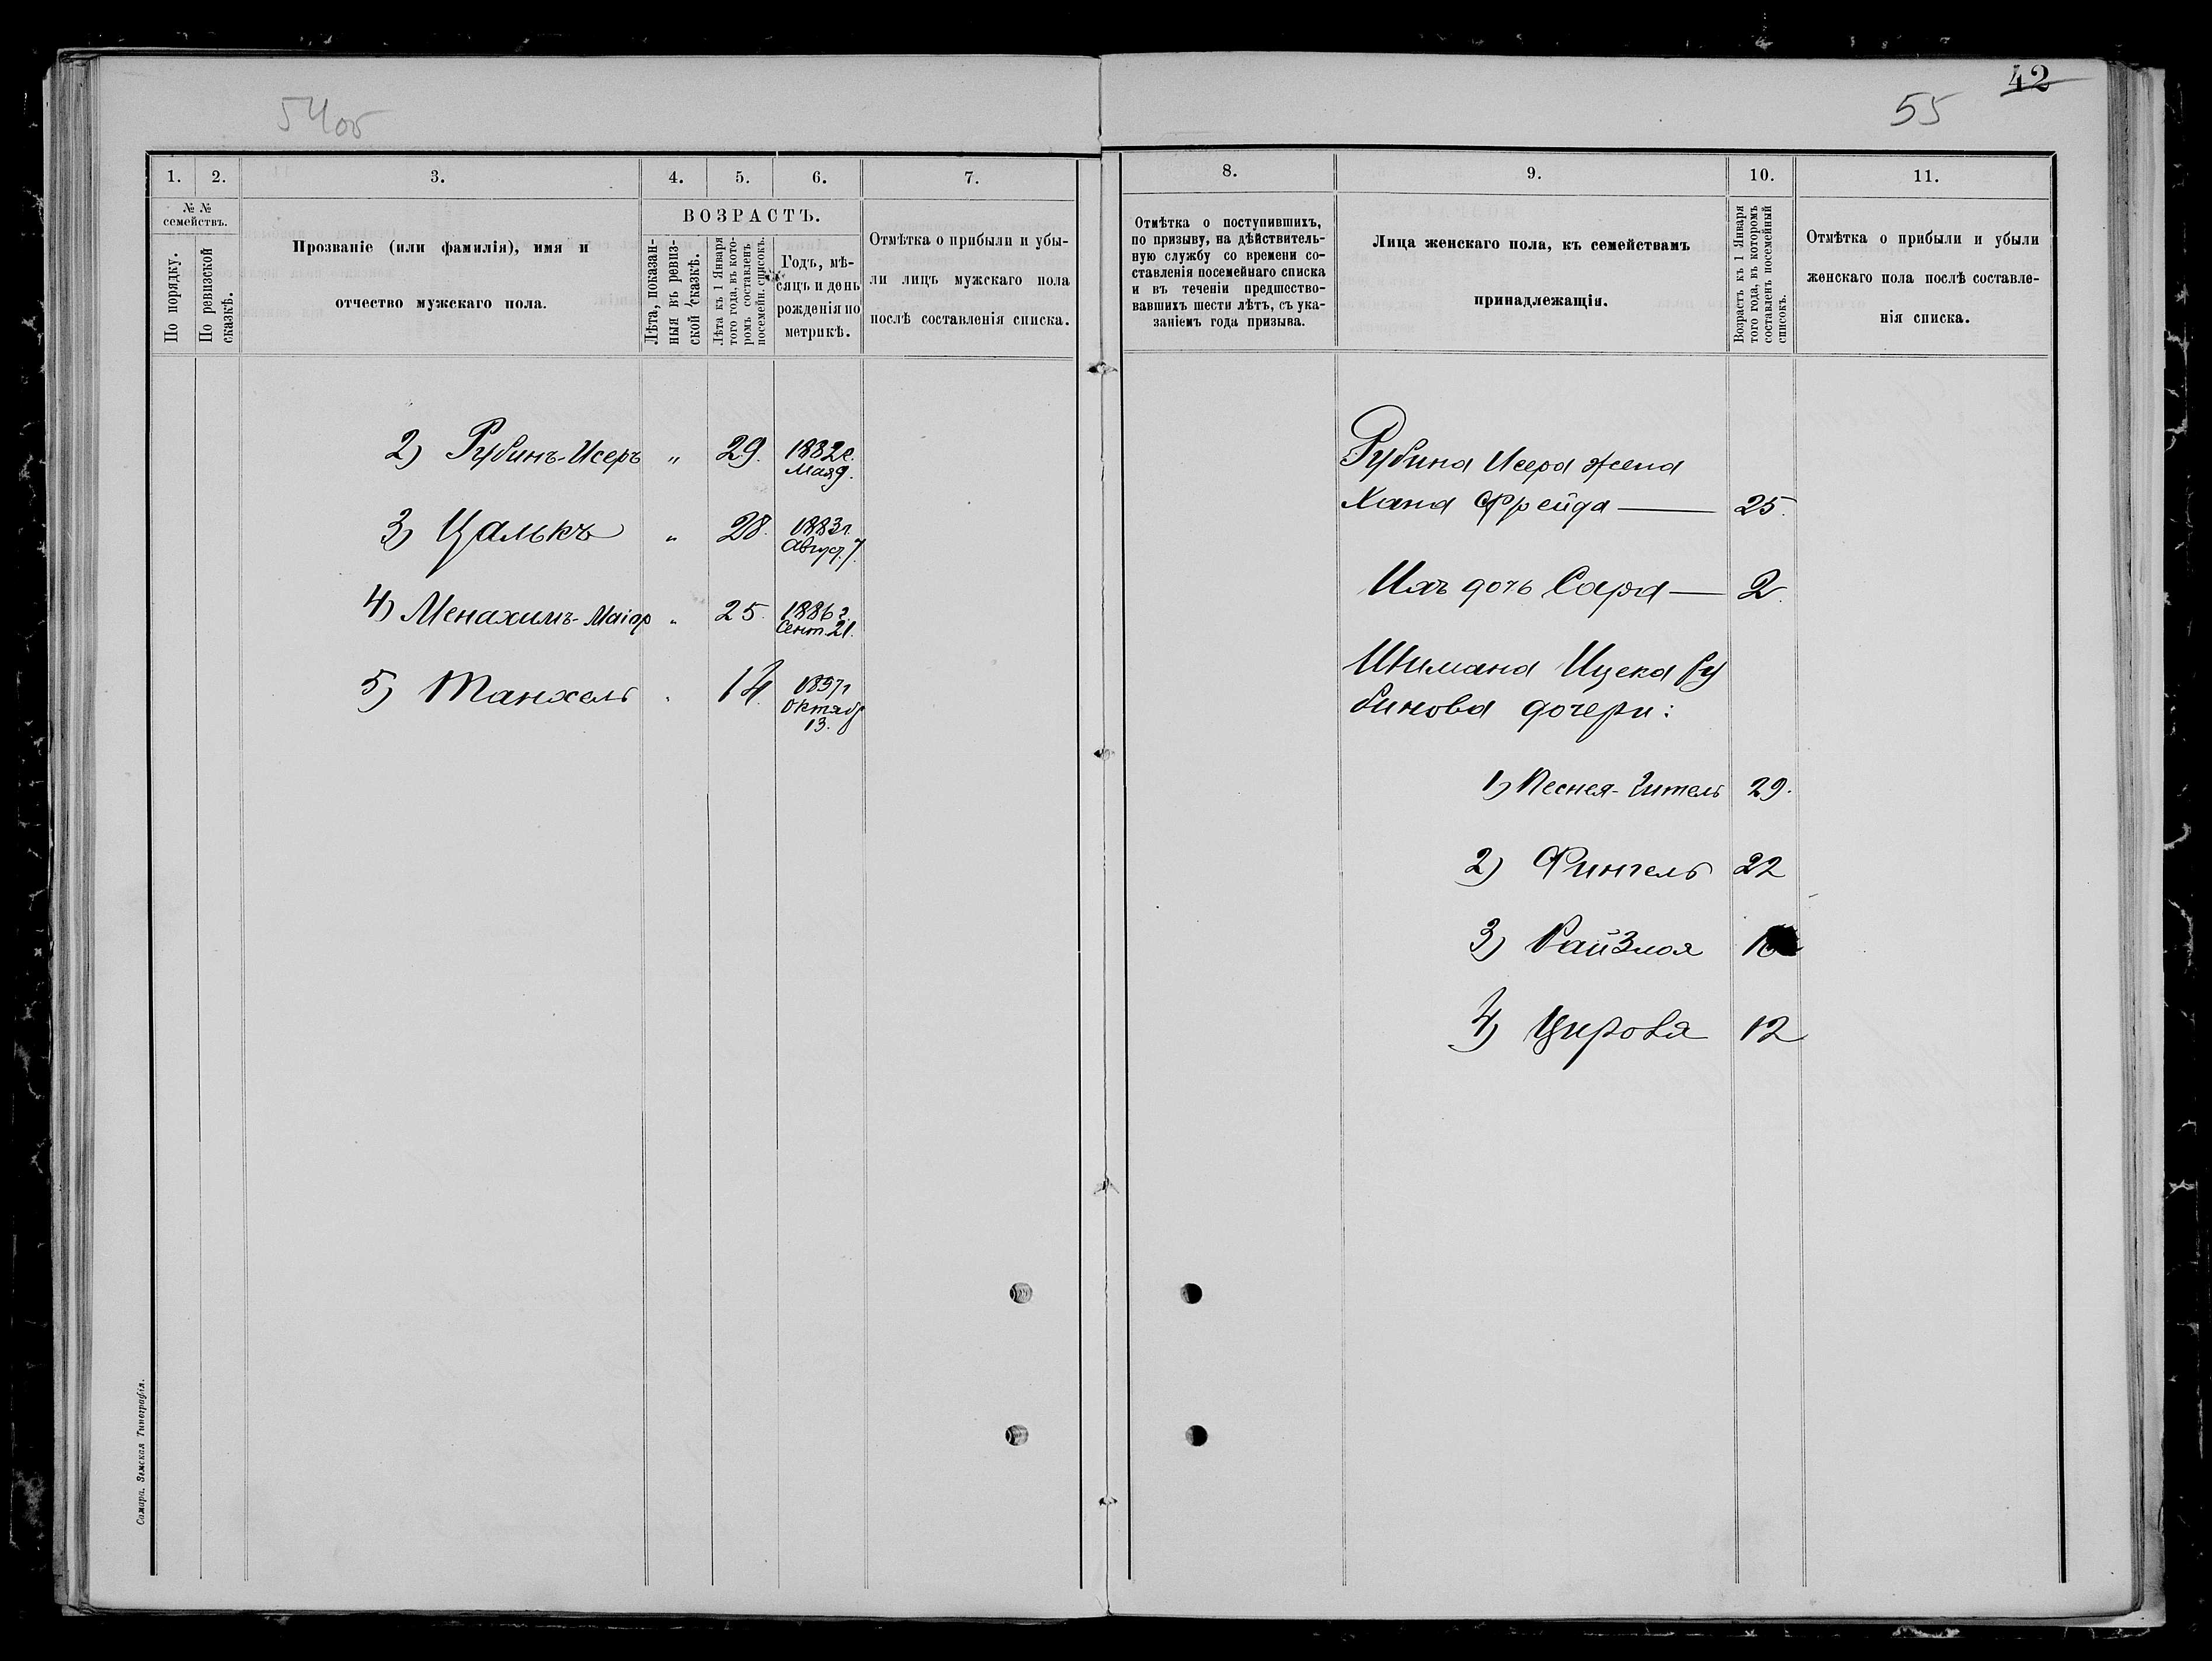 54об
42
55
1.
2.
3.
4.
5.
6.
7.
№ №
семействъ.
По порядку.
По ревизской
сказкѣ.
Прозваніе (или фамилія), имя и
отчество мужскаго пола.
ВОЗРАСТЪ.
Лѣта, показан-
ныя въ ревиз-
ской сказкѣ.
Лѣта къ 1 Января
того года, въ кото-
ромъ составленъ
посемейн. списокъ.
Годъ, мѣ-
сяцъ и день
рожденія по
метрикѣ.
Отмѣтка о прибыли и убы-
ли лицъ мужскаго пола
послѣ составленія списка.
2) Рубинъ-Исеръ „ 29. 1882г.
Мая 9.
3) Цалькъ „ 28. 1883г.
Август. 7.
4) Менахимъ-Маіор „ 25. 1886г.
Сент. 21.
5) Танхель „ 14. 1897г
Октябр
13.
Самара. Земская Типографія.
8.
9.
10.
11.
Отмѣтка о поступившихъ,
по призыву, на дѣйствитель-
ную службу со времени со-
ставленія посемейнаго списка
и въ теченіи предшество-
вавшихъ шести лѣтъ, съ ука-
заніемъ года призыва.
Лица женскаго пола, къ семействамъ
принадлежащія.
Возрастъ къ 1 Января
того года, въ которомъ
составленъ посемейный
списокъ.
Отмѣтка о прибыли и убыли
женскаго пола послѣ составле-
нія списка.
Рубина Исера жена
Хана Фрейда — 25.
Ихъ дочь Сара — 2.
Ицека Ру
бинова дочери:
1) Песнея-Гитель 29.
2) Фингель 22
3) Райзлоя
4) Цировя 12